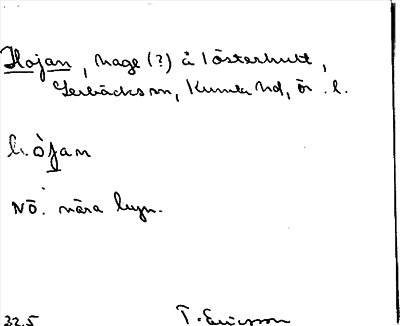 Hojan, hage (?) å Lösterhult,
Lerbäcks sn, Kumla hd, ör. l.
hòjan
NÖ. nära byn.
32.5 T. Ericsson